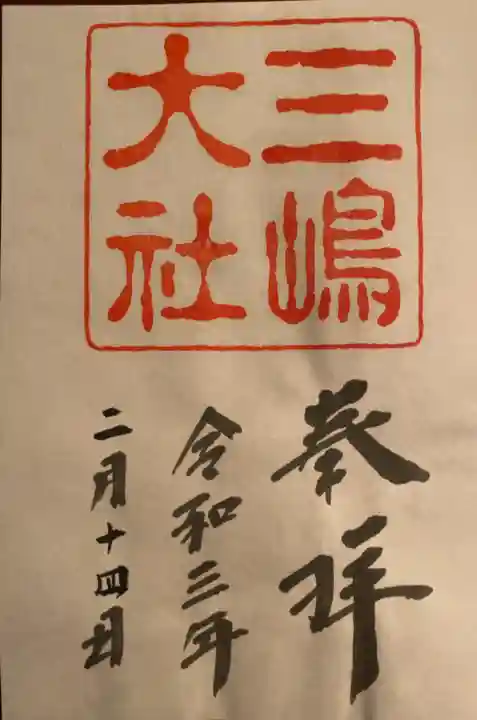 三嶋
大社
奉拝
令和三年
二月十四日